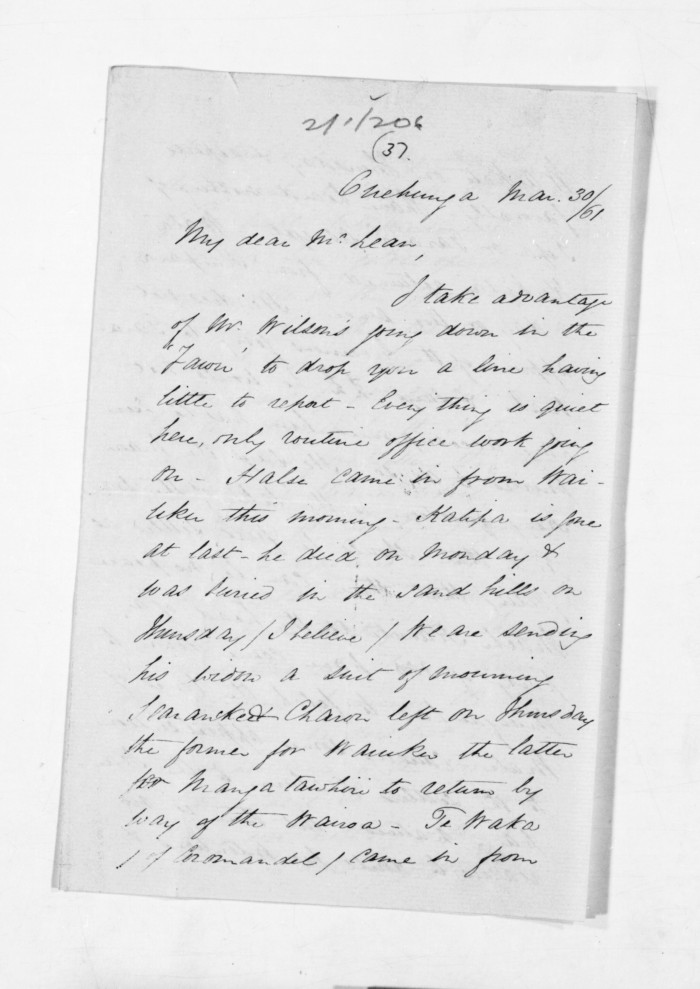 21/1/206
(37.
Onehunga Mar. 30/61
My dear McLean,
I take advantage
of Mr. Wilson's going down in the
"Fawn" to drop you a line having
little to report - Every thing is quiet
here, only routine office work going
on - Halse came in from Wai-
uku this morning - Katipa is gone
at last - he died on Monday &
was buried in the sand hills on
Thursday (I believe) We are sending
his widow a suit of mourning
& Charon left on Thursday
the former for Waiuku the latter
for Mangatawhiri to return by
way of the Wairoa - Te Waka
(of Coromandel) came in from